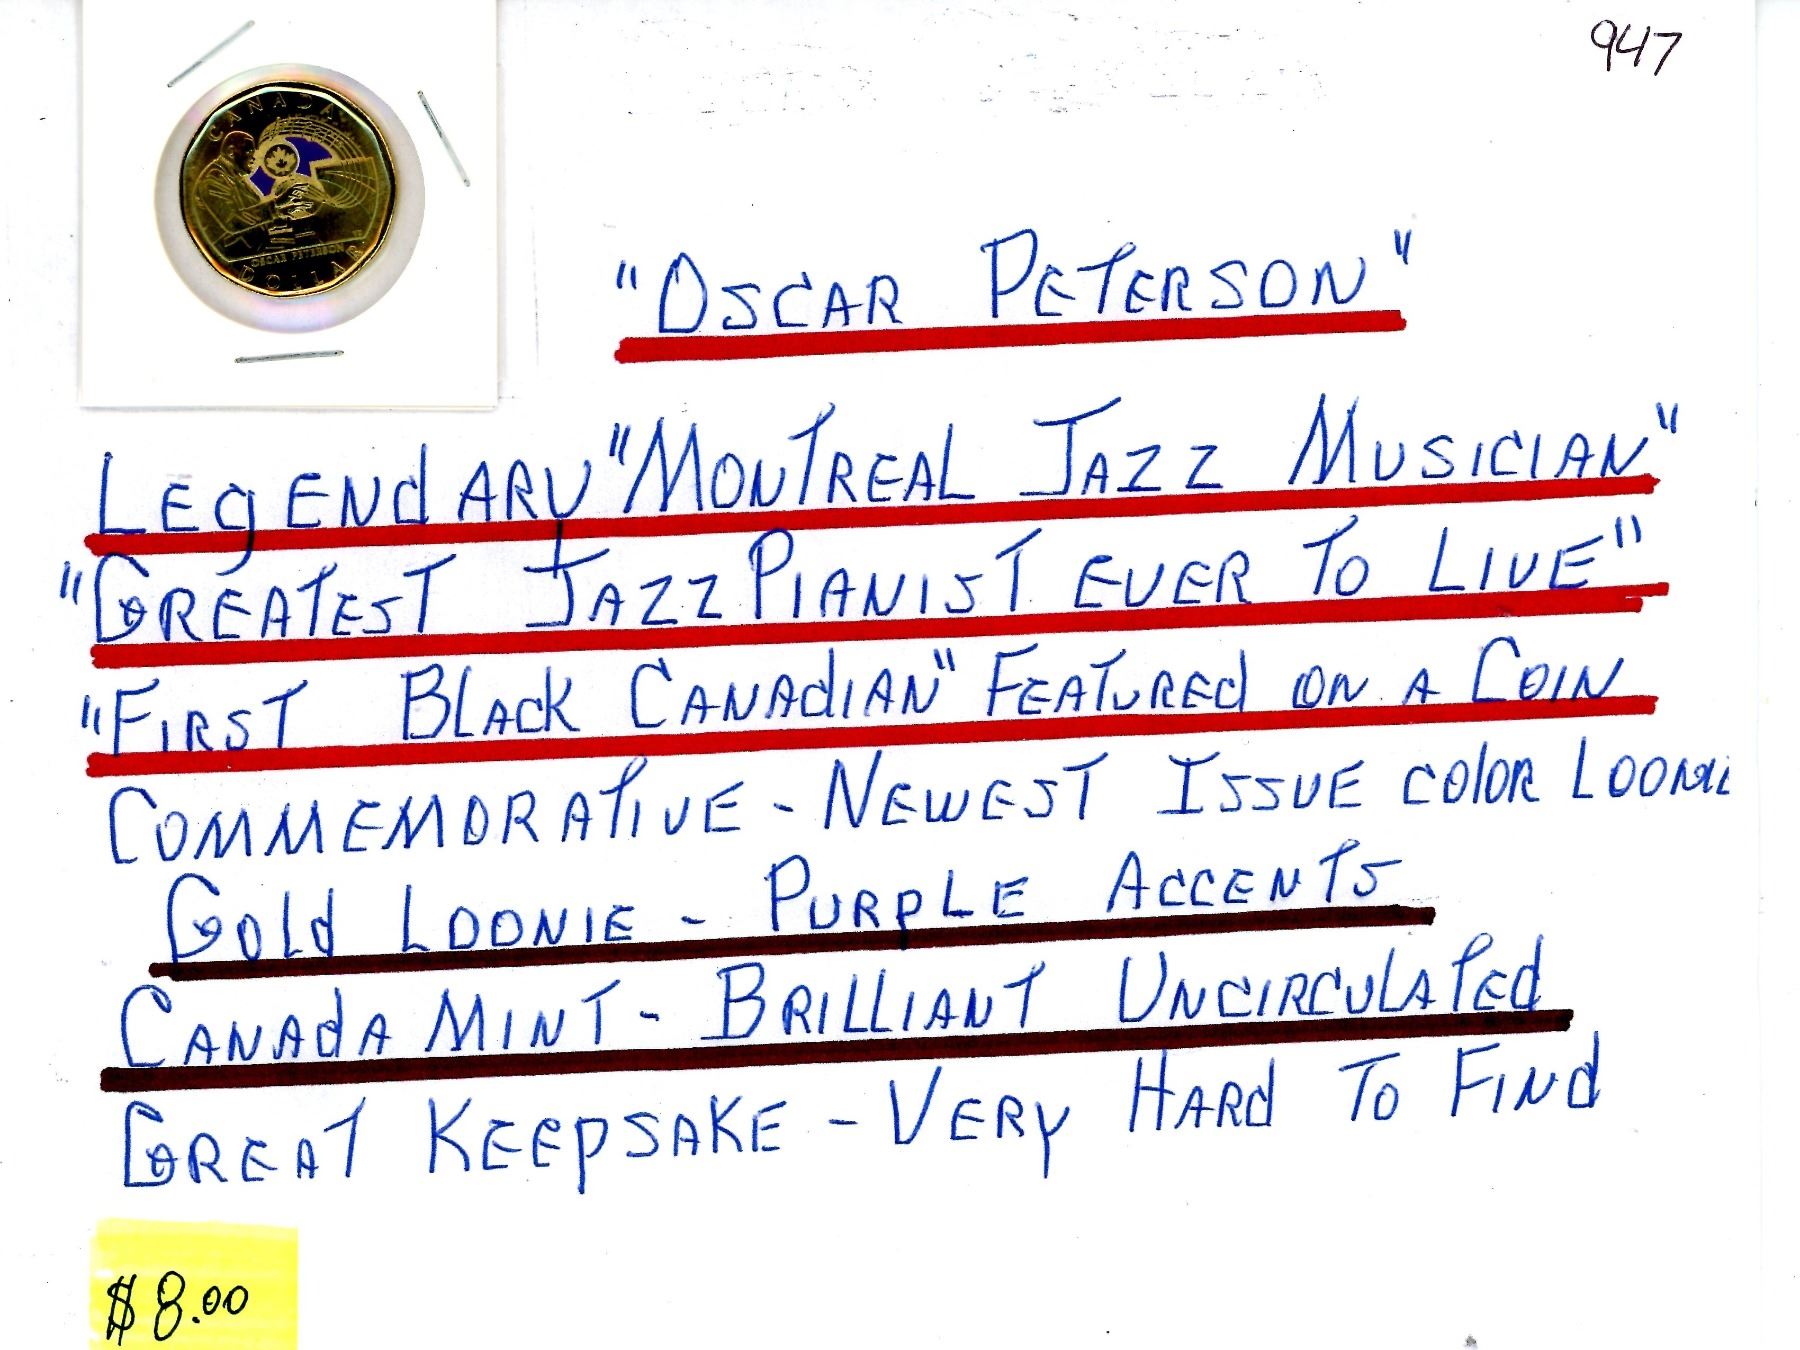 947
CANADA
OSCAR PETERSON
DOLLAR
"OSCAR PETERSON"
LEGENdARY "MONTREAL JAZZ MUSICIAN"
"GREATEST JAZZ PIANIST EVER TO LIVE"
"FIRST BLACK CANAdIAN" FEATUREd ON A COIN
COMMEMORATIVE - NEWEST ISSUE COLOR LOONIE
GOLd LOONIE - PURPLE ACCENTS
CANAdA MINT - BRILLIANT UNCIRCULATEd
GREAT KEEPSAKE - VERY HARd TO FINd
$8.00